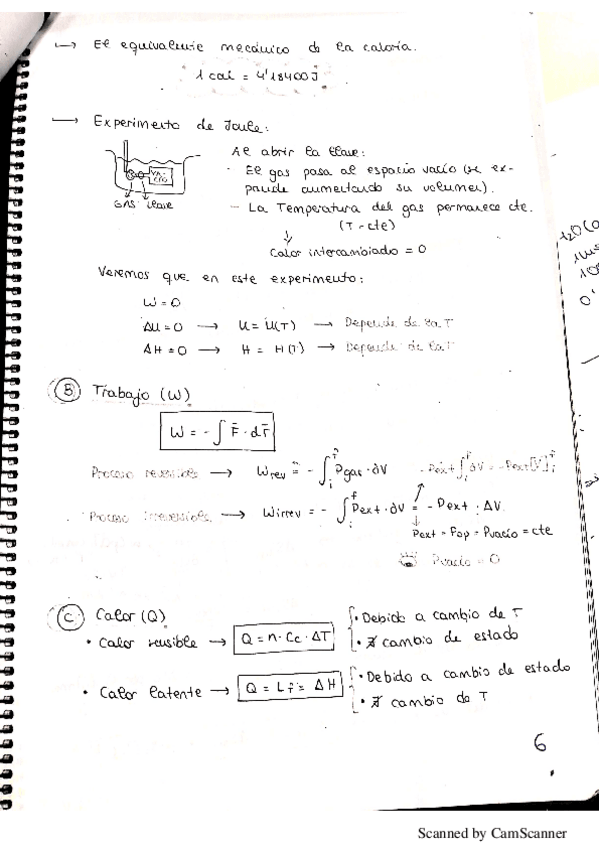 → El equivalente mecánico de la caloría.
1 cal = 4'18400 J
→ Experimento de Joule:
Al abrir la llave:
- El gas pasa al espacio vacío (se ex-
pande aumentando su volumen).
GAS llave
- La Temperatura del gas permanece cte.
(T = cte)
↓
Calor intercambiado = 0
Veremos que en este experimento:
W = 0
ΔU = 0 → U = U(T) → Depende de la T
ΔH = 0 → H = H(T) → Depende de la T
B) Trabajo (W)
W = - ∫ F̄ · dr̄
Proceso reversible → Wrev = - ∫ᵢᶠ Pgas · dV
- Pext ∫ᵢᶠ dV = - Pext [V]ᵢᶠ
Proceso irreversible → Wirrev = - ∫ᵢᶠ Pext · dV = - Pext · ΔV
Pext = Fop = Pvacío = cte
Pvacío = 0
C) Calor (Q)
• Calor sensible → Q = n · Cc · ΔT
• Debido a cambio de T
• ∄ cambio de estado
• Calor latente → Q = Lf = ΔH
• Debido a cambio de estado
• ∄ cambio de T
6
Scanned by CamScanner